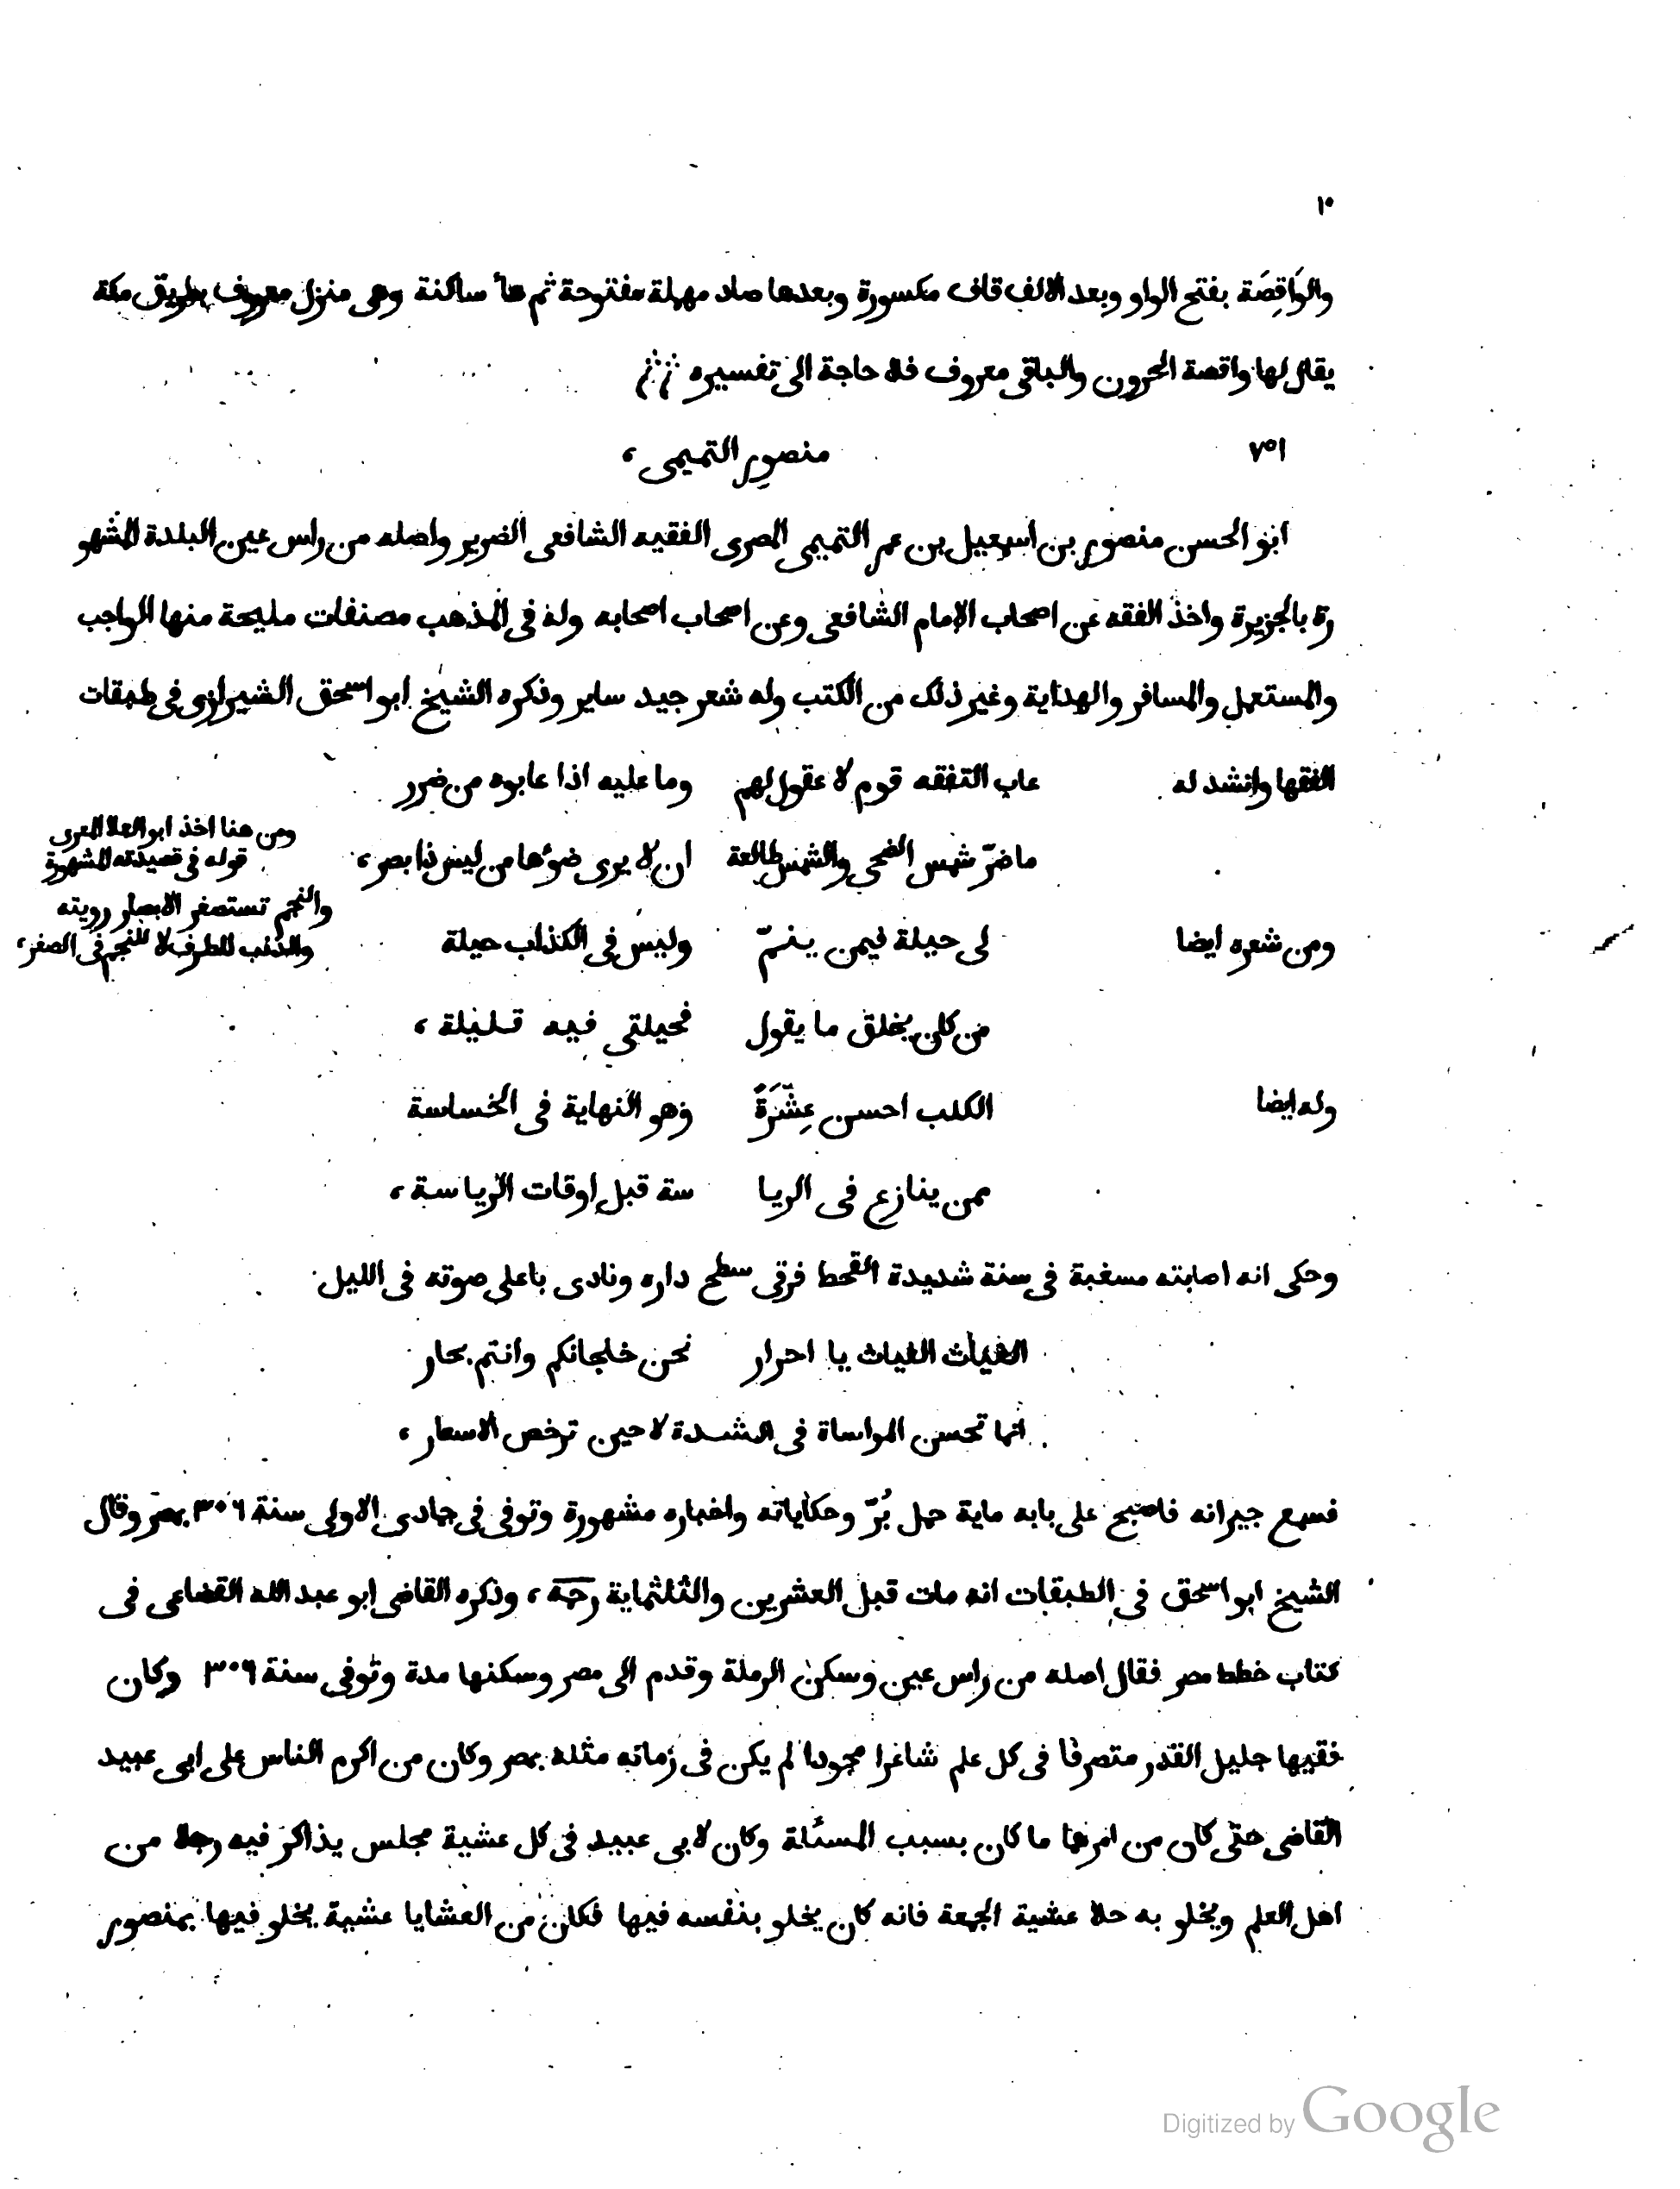 ١٠
والوَاقِصَة بفتح الواو وبعد الالف قاف مكسورة وبعدها صاد مهملة مفتوحة ثم هآ ساكنة وهى منزل معروف بطريق مكة
يقال لها واقصة الحرون والباقى معروف فلا حاجة الى تفسيره
٧٥١ منصور التميمى،
ابو الحسن منصور بن اسمعيل بن عمر التميمى المصرى الفقيه الشافعى الضرير واصله من راس عين البلدة المشهو
رة بالجزيرة واخذ الفقه عن اصحاب الإمام الشافعى وعن اصحاب اصحابه وله فى المذهب مصنفات مليحة منها الواجب
والمستعمل والمسافر والهداية وغير ذلك من الكتب وله شعر جيد ساير وذكره الشيخ ابو اسحق الشيرازى فى طبقات
الفقها وانشد له عاب التفقه قوم لا عقول لهم وما عليه اذا عابوه من ضرر
ما ضرّ شمس الضحى والشمس طالعة ان لا يرى ضوءها من ليس ذا بصر،
ومن هنا اخذ ابو العلا المعرى
قوله فى قصيدته المشهورة
والنجم تستصغر الابصار رويته
والذنب للطرف لا للنجم فى الصغر،
ومن شعره ايضا لى حيلة فيمن ينمّ وليس فى الكذاب حيلة
من كان يخلق ما يقول فحيلتى فيه قليلة،
وله ايضا الكلب احسن عِشْرَةً وهو النهاية فى الخساسة
ممن ينازع فى الريا سة قبل اوقات الرياسة،
وحكى انه اصابته مسغبة فى سنة شديدة القحط فرقى سطح داره ونادى باعلى صوته فى الليل
الغياث الغياث يا احرار نحن خلجانكم وانتم بحار
انما تحسن المواساة فى الشدة لا حين ترخص الاسعار،
فسمع جيرانه فاصبح على بابه ماية حمل بُرّ وحكاياته واخباره مشهورة وتوفى فى جمادى الاولى سنة ٣٠٦ بمصر وقال
الشيخ ابو اسحق فى الطبقات انه مات قبل العشرين والثلثماية رحمه، وذكره القاضى ابو عبد الله القضاعى فى
كتاب خطط مصر فقال اصله من راس عين وسكن الرملة وقدم الى مصر وسكنها مدة وتوفى سنة ٣٠٦ وكان
فقيها جليل القدر متصرفا فى كل علم شاعرا مجودا لم يكن فى زمانه مثله بمصر وكان من اكرم الناس على ابى عبيد
القاضى حتى كان من امرهما ما كان بسبب المسئلة وكان لابى عبيد فى كل عشية مجلس يذاكر فيه رجلا من
اهل العلم ويخلو به خلا عشية الجمعة فانه كان يخلو بنفسه فيها فكان من العشايا عشية يخلو فيها بمنصور
Digitized by Google